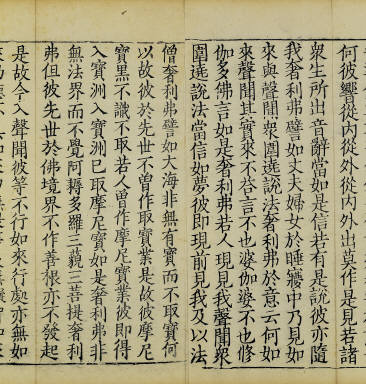 何彼響從内從外從内外出莫作是見若諸
衆生所出音辭當如是信若有是說彼亦隨
我奢利弗譬如丈夫婦女於睡寱中乃見如
來與聲聞衆圍遶說法奢利弗於意云何如
來聲聞其實來不荅言不也婆伽婆不也修
伽多佛言如是奢利弗若人現見我聲聞衆
圍遶說法當信如夢彼即現前見我及以法
僧奢利弗譬如大海非無有寳而不取寳何
以故彼於先世不曾作取寳業是故彼摩尼
寳黑不識不取若人曾作摩尼寳業彼即得
入寳洲入寳洲已取摩尼寳如是奢利弗非
無法界而不覺阿耨多羅三藐三菩提奢利
弗但彼先世於佛境界不作善根亦不發起
是故今入聲聞彼等不行如來行處亦無如